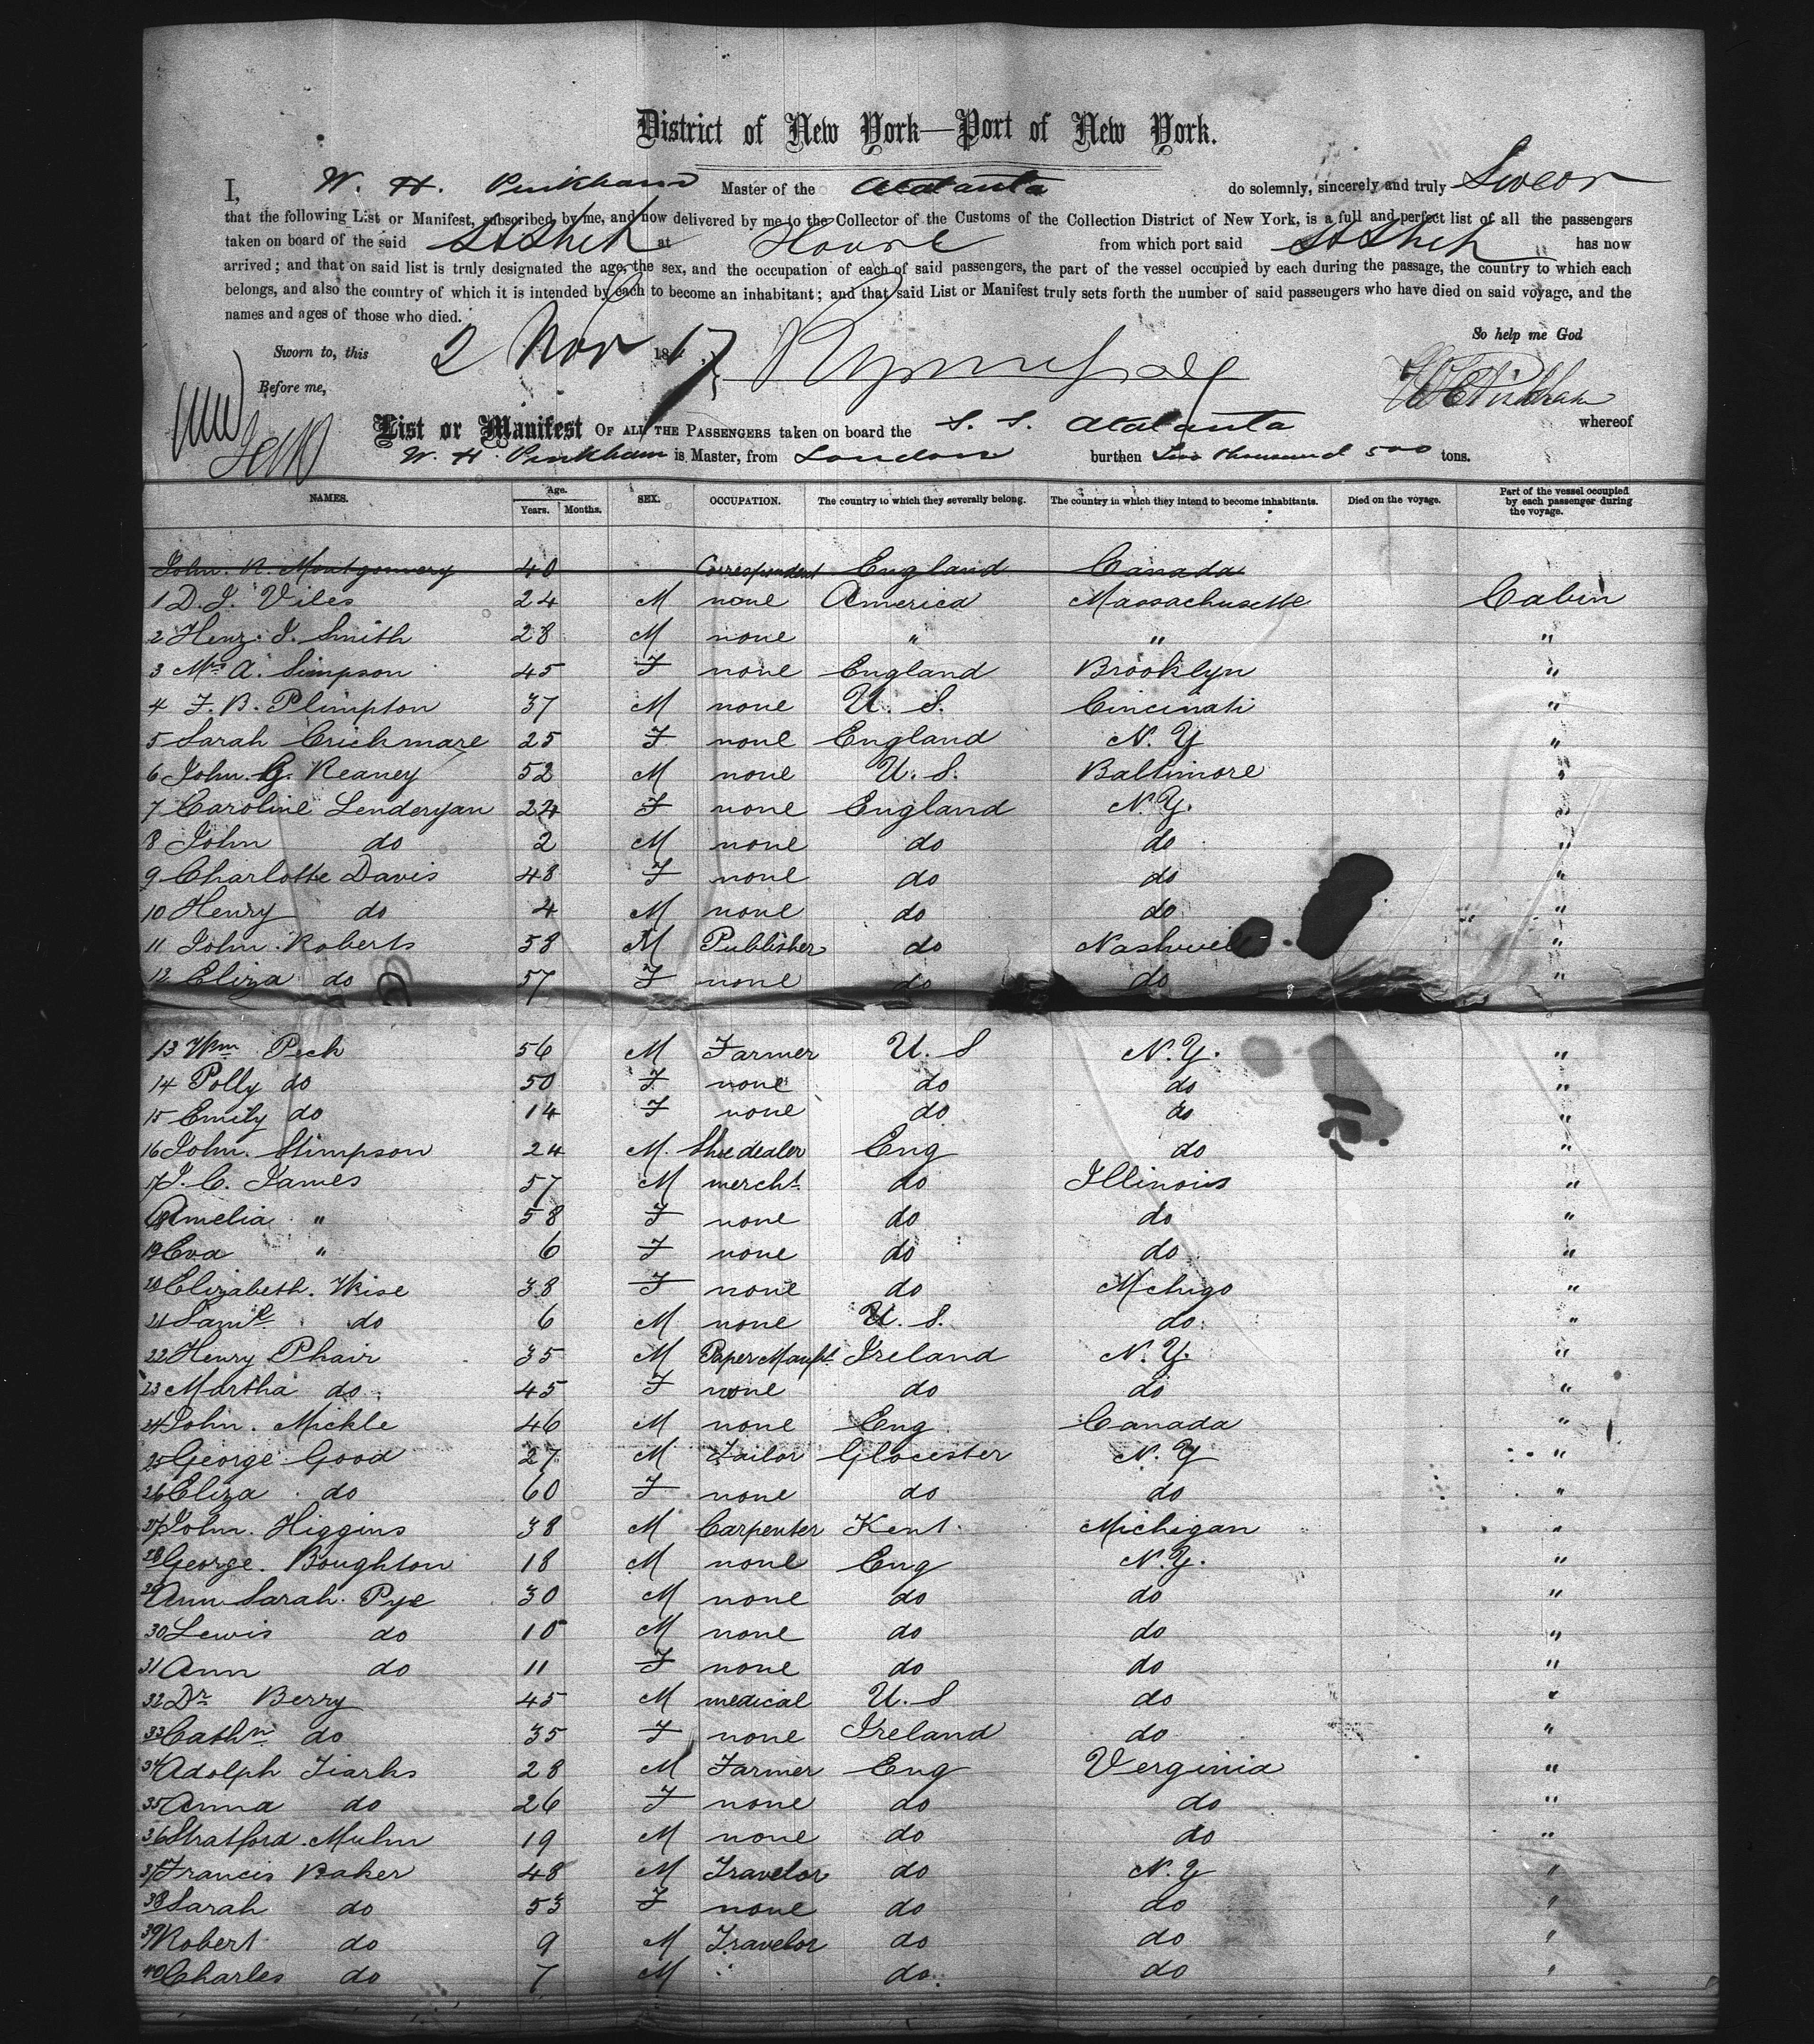 District of New York—Port of New York.
I, W. H. Pinkham Master of the Atalanta do solemnly, sincerely and truly Swear
that the following List or Manifest, subscribed by me, and now delivered by me to the Collector of the Customs of the Collection District of New York, is a full and perfect list of all the passengers
taken on board of the said at Havre from which port said has now
arrived; and that on said list is truly designated the age, the sex, and the occupation of each of said passengers, the part of the vessel occupied by each during the passage, the country to which each
belongs, and also the country of which it is intended by each to become an inhabitant; and that said List or Manifest truly sets forth the number of said passengers who have died on said voyage, and the
names and ages of those who died.
So help me God
Sworn to, this 2 Nov 18
Before me,
List or Manifest OF ALL THE PASSENGERS taken on board the S. S. Atalanta whereof
W. H. Pinkham is Master, from London burthen Two thousand 500 tons.
NAMES. Age. Years. Months. SEX. OCCUPATION. The country to which they severally belong. The country in which they intend to become inhabitants. Died on the voyage. Part of the vessel occupied by each passenger during the voyage.
John. R. Montgomery 40 Correspondent England Canada
1 D. J. Viles 24 M none America Massachusetts Cabin
2 Henz. J. Smith 28 M none " " "
3 Mrs A. Simpson 45 F none England Brooklyn "
4 F. B. Plimpton 37 M none U. S. Cincinati "
5 Sarah Crickmare 25 F none England N. Y "
6 John. G. Reaney 52 M none U. S. Baltimore "
7 Caroline Lenderyan 24 F none England N. Y. "
8 John do 2 M none do do "
9 Charlotte Davis 48 F none do do "
10 Henry do 4 M none do do "
11 John. Roberts 58 M Publisher do Nashville "
12 Eliza do 57 F none do do "
13 Wm Peck 56 M Farmer U. S N. Y. "
14 Polly do 50 F none do do "
15 Emily do 14 F none do do "
16 John. Stimpson 24 M. Shoedealer Eng do "
17 J. C. James 57 M mercht do Illinois "
18 Amelia " 58 F none do do "
19 Eva " 6 F none do do "
20 Elizabeth. Wise 38 F none do Mchigo "
21 Saml do 6 M none U. S. do "
22 Henry Phair 35 M Paper Manfct Ireland N. Y. "
23 Martha do 45 F none do do "
24 John. Mickle 46 M none Eng Canada "
25 George Good 27 M Tailor Glocester N. Y "
26 Eliza do 60 F none do do "
27 John. Higgins 38 M Carpenter Kent Michigan "
28 George. Boughton 18 M none Eng N. Y. "
29 Ann Sarah. Pye 30 M none do do "
30 Lewis do 10 M none do do "
31 Ann do 11 F none do do "
32 Dr Berry 45 M medical U. S do "
33 Cathn do 35 F none Ireland do "
34 Adolph Tiarks 28 M Farmer Eng Verginia "
35 Anna do 26 F none do do "
36 Stratford. Mulm 19 M none do do "
37 Francis Baker 48 M Travelor do N. Y "
38 Sarah do 53 F none do do "
39 Robert do 9 M Travelor do do "
40 Charles do 7 M do do "